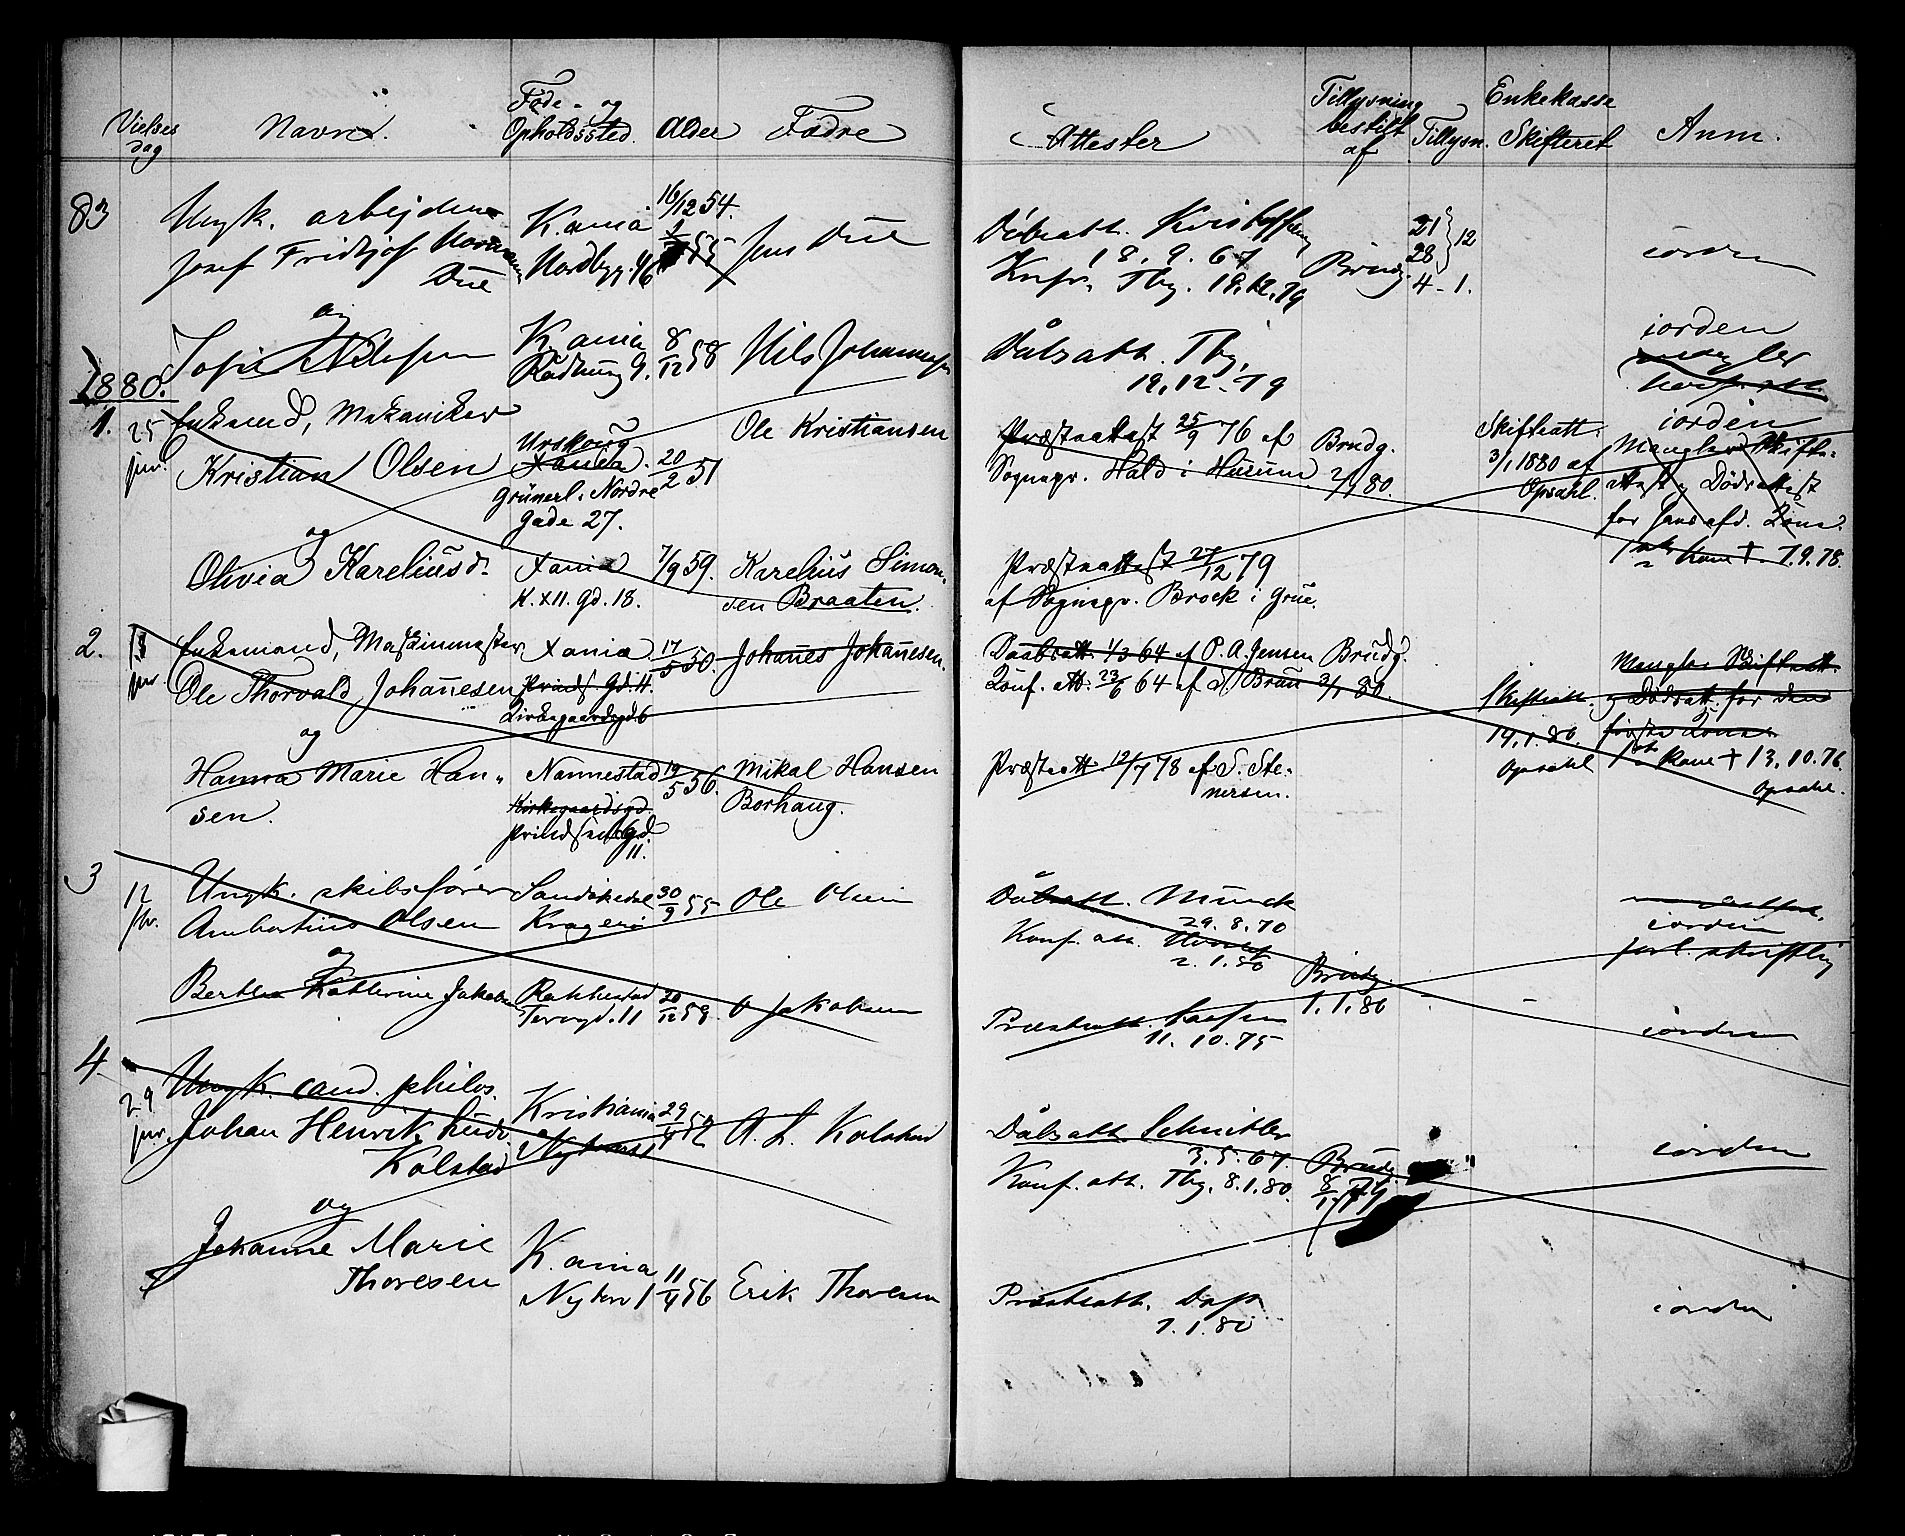 Vielses dag
Navne.
Føde- og Opholdssted.
Alder
Fædre
Attester
Tillysning bestilt af
Tillysn.
Enkekasse Skifteret
Anm.
83
Ungk. arbejder
Josef Fridtjof Normann
Due
K.ania
Nordbyg. 46
16/12 54.
Jens Due
Dåbsatt. Kristoffersen
18. 9. 67
Knfr. Tbg. 19.12.79
Brudg.
21
28 } 12
4 - 1.
iorden
og
Sofie Nilssen
K.ania
Rådhusg 9.
8/12 58
Nils Johannessen
Dåbsatt. Tbg.
19.12.79
iorden
1880.
1.
25 jnr.
Enkemand, Mekaniker
Kristian Olsen
Urskoug
Xania.
Grünerl. Nordre
gade 27.
20/2 51
Ole Kristiansen
Præsteattest 25/9 76 af
Sognepr. Hald i Husum
Brudg.
2/1 80.
Skifteatt.
3/1 1880 af
Opsahl.
iorden
Mangler Skifte-
attest og Dødsattest
for hans afd. Kone.
Kone † 7.9.78.
og
Olivia Kareliusd.
Xania
K. XII. gd. 18.
7/9 59.
Karelius Simon-
sen Braaten.
Præsteattest 27/12 79
af Sognepr. Brock i Grue.
2.
Enkemand, Maskinmester
Ole Thorvald Johannesen
Xania
Prinds. Gd. 11.
Kirkegaardsgd. 6
17/5 50.
Johannes Johannesen.
Daabsatt. 1/3 64 af P. A. Jensen
Konf. att. 23/6 64 af d. Brun
Brudg.
3/1 80.
Skifteatt.
19.1.80.
Opsahl
Mangler Skifteatt.
og Dødsatt. for den
første Kone.
Kone † 13.10.76.
Opsahl.
og
Hanna Marie Han-
sen.
Nannestad
Kirkegaardsgd.
Prindsens gd.
11.
19/5 56.
Mikal Hansen
Borhaug.
Præsteatt. 12/7 78 af S. Ste-
nersen.
3
12 fbr.
Ungk. skibsfører
Ambortius Olsen
Sandøkedal
Kragerø
30/9 55
Ole Olsen
Dåbsatt. Munck
29.8.70
Konf. att.
2.1.80
Brudg.
1.1.80
iorden
forl. skriftlig
og
Berthe Katherine Jakobsen
Rakkestad
Torvgd. 11
20/12 59.
O Jakobsen
Præsteatt.
11. 10. 75
iorden
4
29 jnr.
Ungk. cand. philos.
Johan Henrik Ludv.
Kolstad
Kristiania
Nytorv 1
29/4 52
A. L. Kolstad
Dåbsatt. Schnitler
3.5.67.
Konf. att. Tbg. 8.1.80.
Brudg.
8/1 79
iorden
og
Johanne Marie
Thoresen
K.ania
Nytorv 1
11/4 56
Erik Thoresen
Præsteatt. Dop
7.1.80
iorden